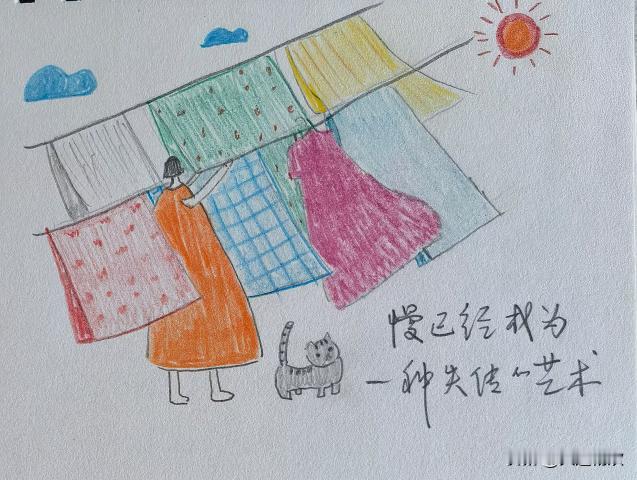 慢已经成为
一种失传的艺术